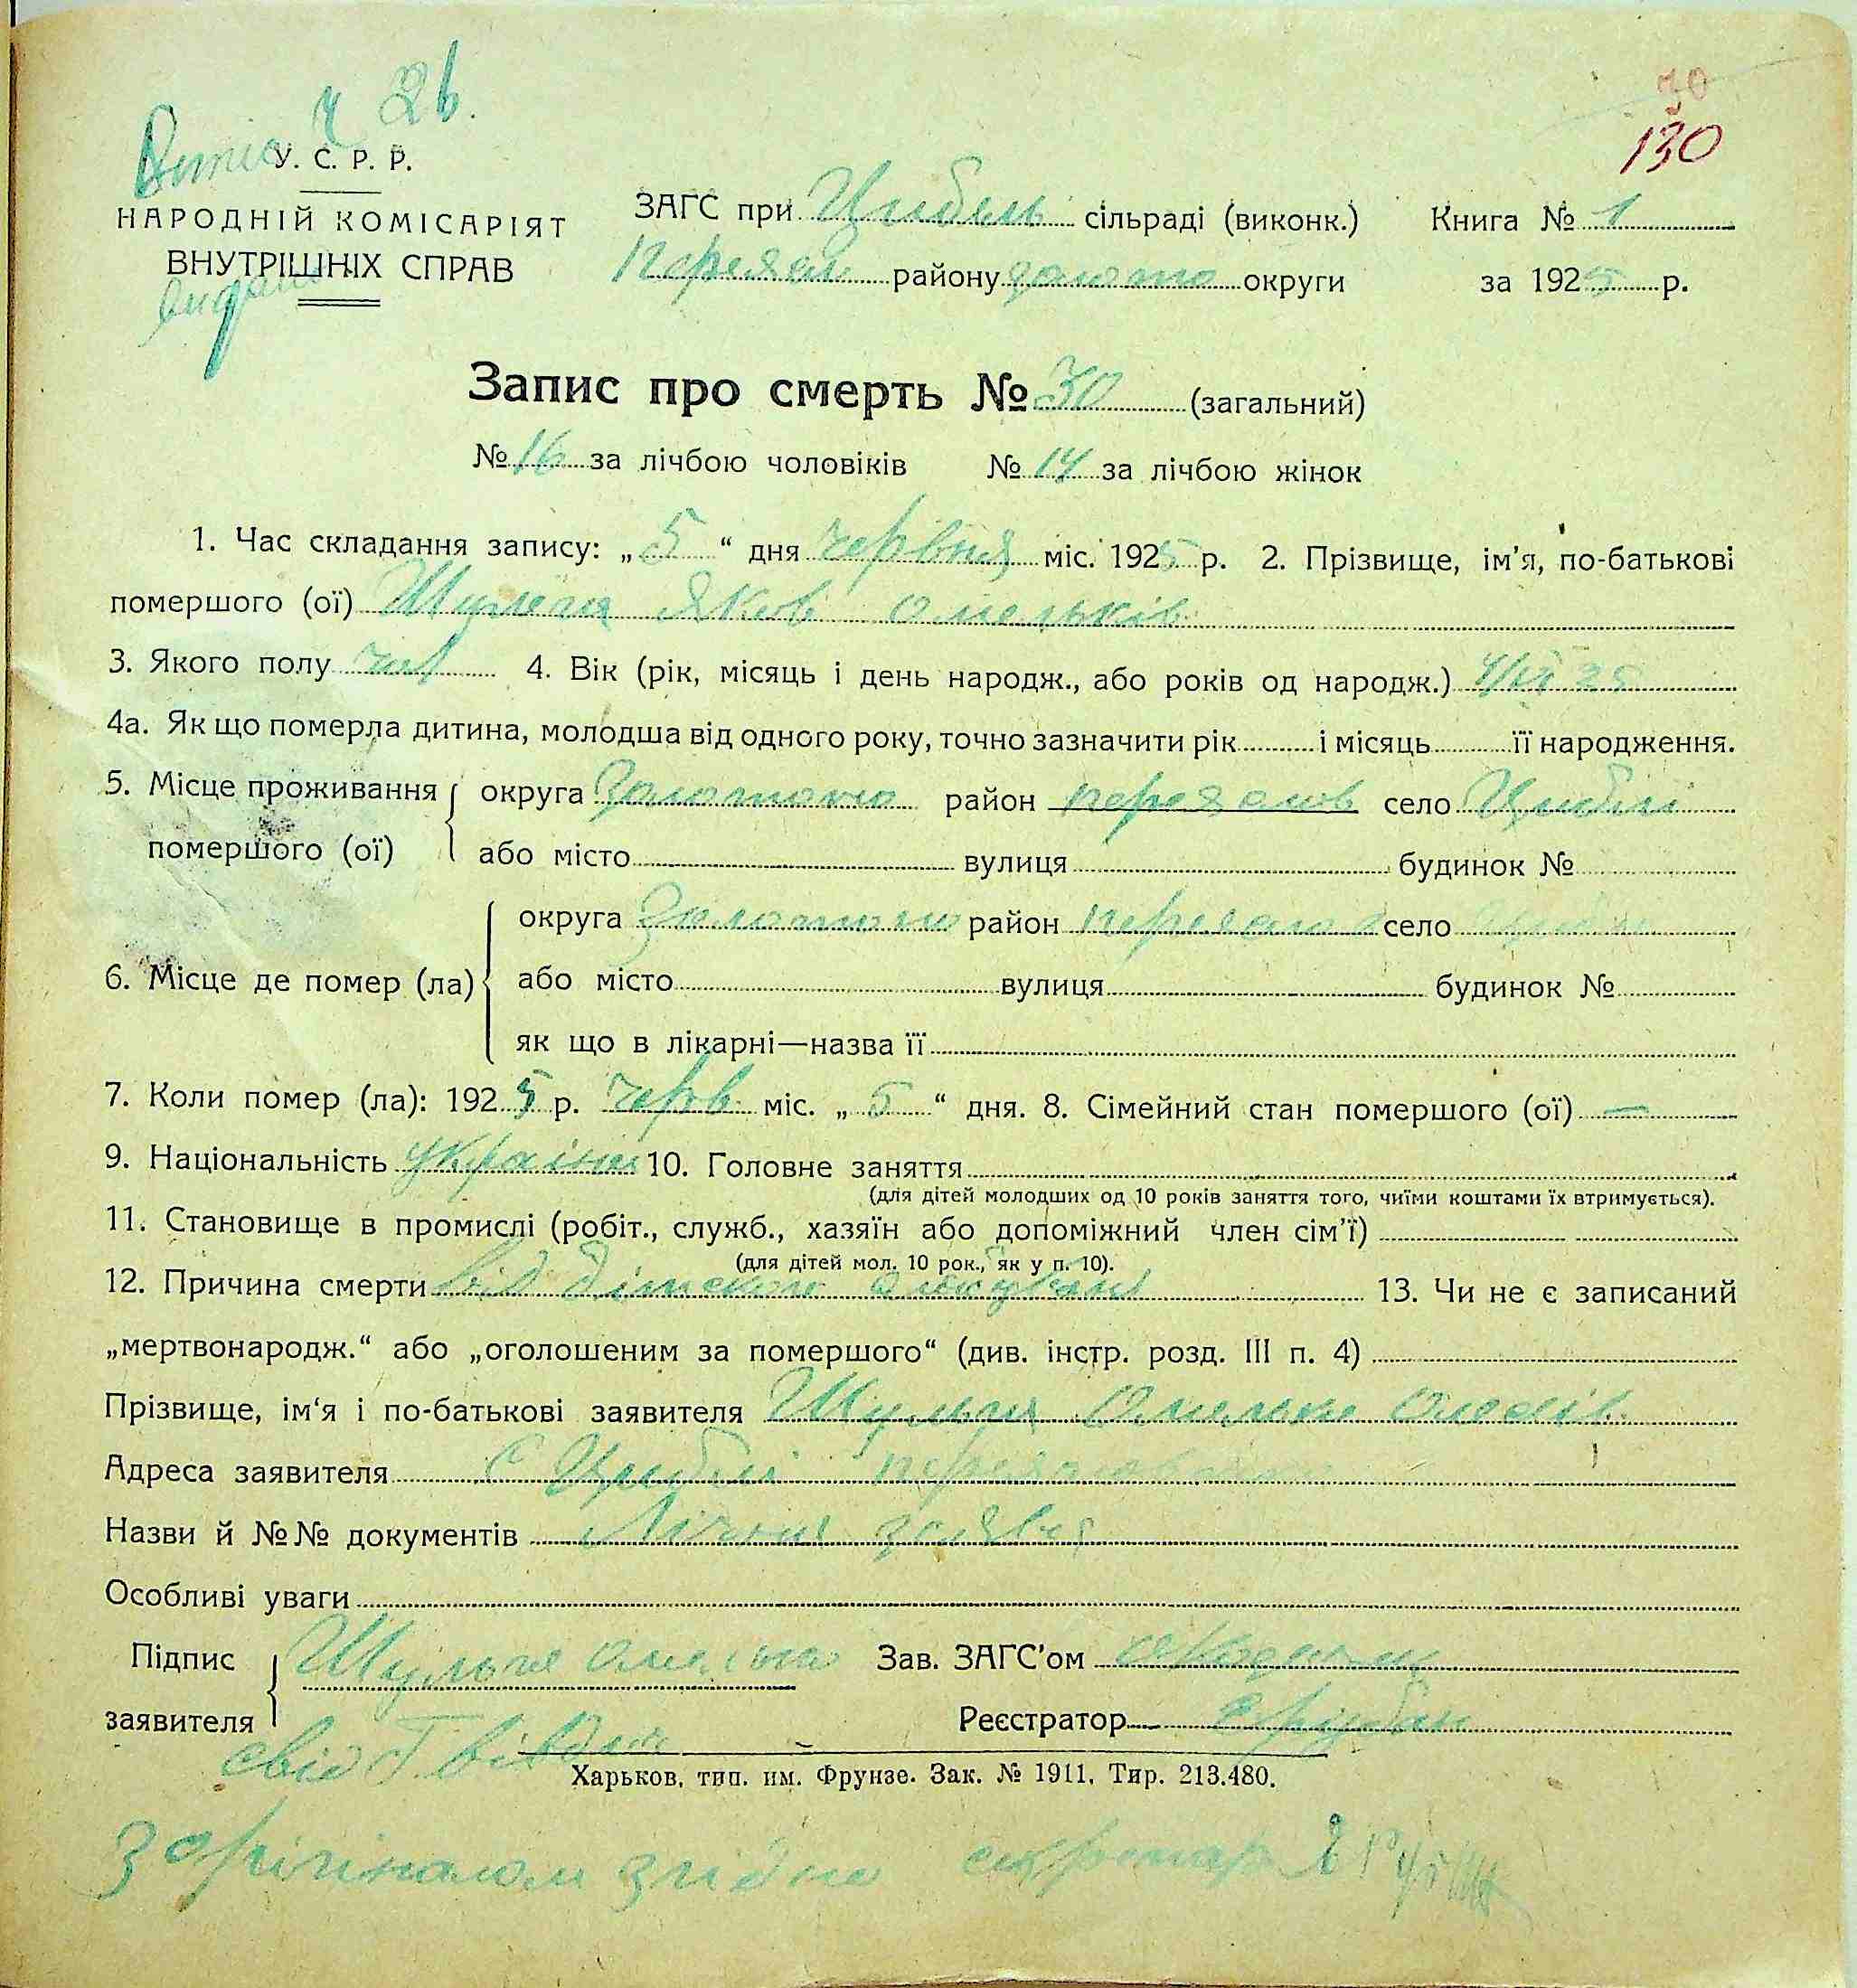 ч 26.
70
130
У. С. Р. Р.
НАРОДНІЙ КОМІСАРІЯТ
ВНУТРІШНІХ СПРАВ
ЗАГС при Цибель сільраді (виконк.) Книга № 1
Переясл району золото округи за 1925 р.
Запис про смерть № 30 (загальний)
№ 16 за лічбою чоловіків № 14 за лічбою жінок
1. Час складання запису: „ 5 “ дня червня міс. 1925 р. 2. Прізвище, ім’я, по-батькові
помершого (ої) Шульга Яков Омельків
3. Якого полу чол 4. Вік (рік, місяць і день народж., або років од народж.)
4а. Як що померла дитина, молодша від одного року, точно зазначити рік і місяць її народження.
5. Місце проживання помершого (ої) округа Золотоно район переяслов село Циблі
або місто вулиця будинок №
6. Місце де помер (ла) округа Золотоно район переяслов село Циблі
або місто вулиця будинок №
як що в лікарні—назва її
7. Коли помер (ла): 1925 р. черв міс. „ 5 “ дня. 8. Сімейний стан помершого (ої) —
9. Національність україн 10. Головне заняття
(для дітей молодших од 10 років заняття того, чиїми коштами їх втримується).
11. Становище в промислі (робіт., служб., хазяїн або допоміжний член сім’ї)
(для дітей мол. 10 рок., як у п. 10).
12. Причина смерти від дітского 13. Чи не є записаний
„мертвонародж.“ або „оголошеним за помершого“ (див. інстр. розд. III п. 4)
Прізвище, ім‘я і по-батькові заявителя Шульга Омелько
Адреса заявителя с Циблі
Назви й №№ документів Лічная заявка
Особливі уваги
Підпис заявителя Шульга Омелько Зав. ЗАГС’ом
Реєстратор
Харьков, тип. им. Фрунзе. Зак. № 1911. Тир. 213.480.
З орігіналом згідно секретар